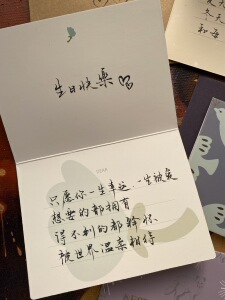 生日快樂
DEAR
只愿你一生幸运、一生被爱
想要的都拥有
得不到的都释怀
被世界温柔相待
冬天
和每